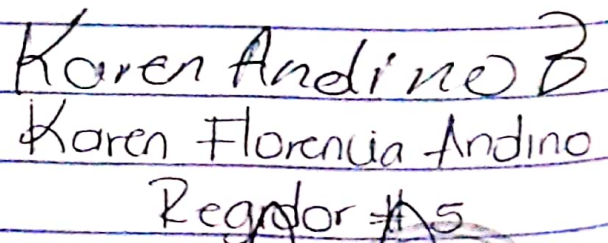 Karen Andino B
Karen Florencia Andino
Regidor # 5